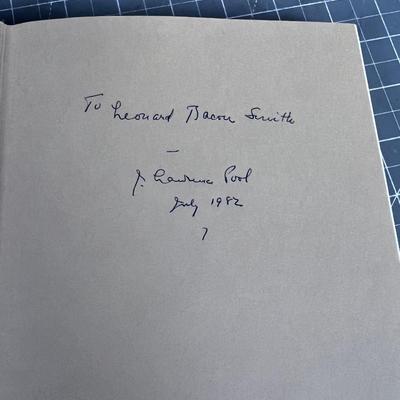 To Leonard Bacon Smith
—
J. Lawrence Pool
July 1982
7